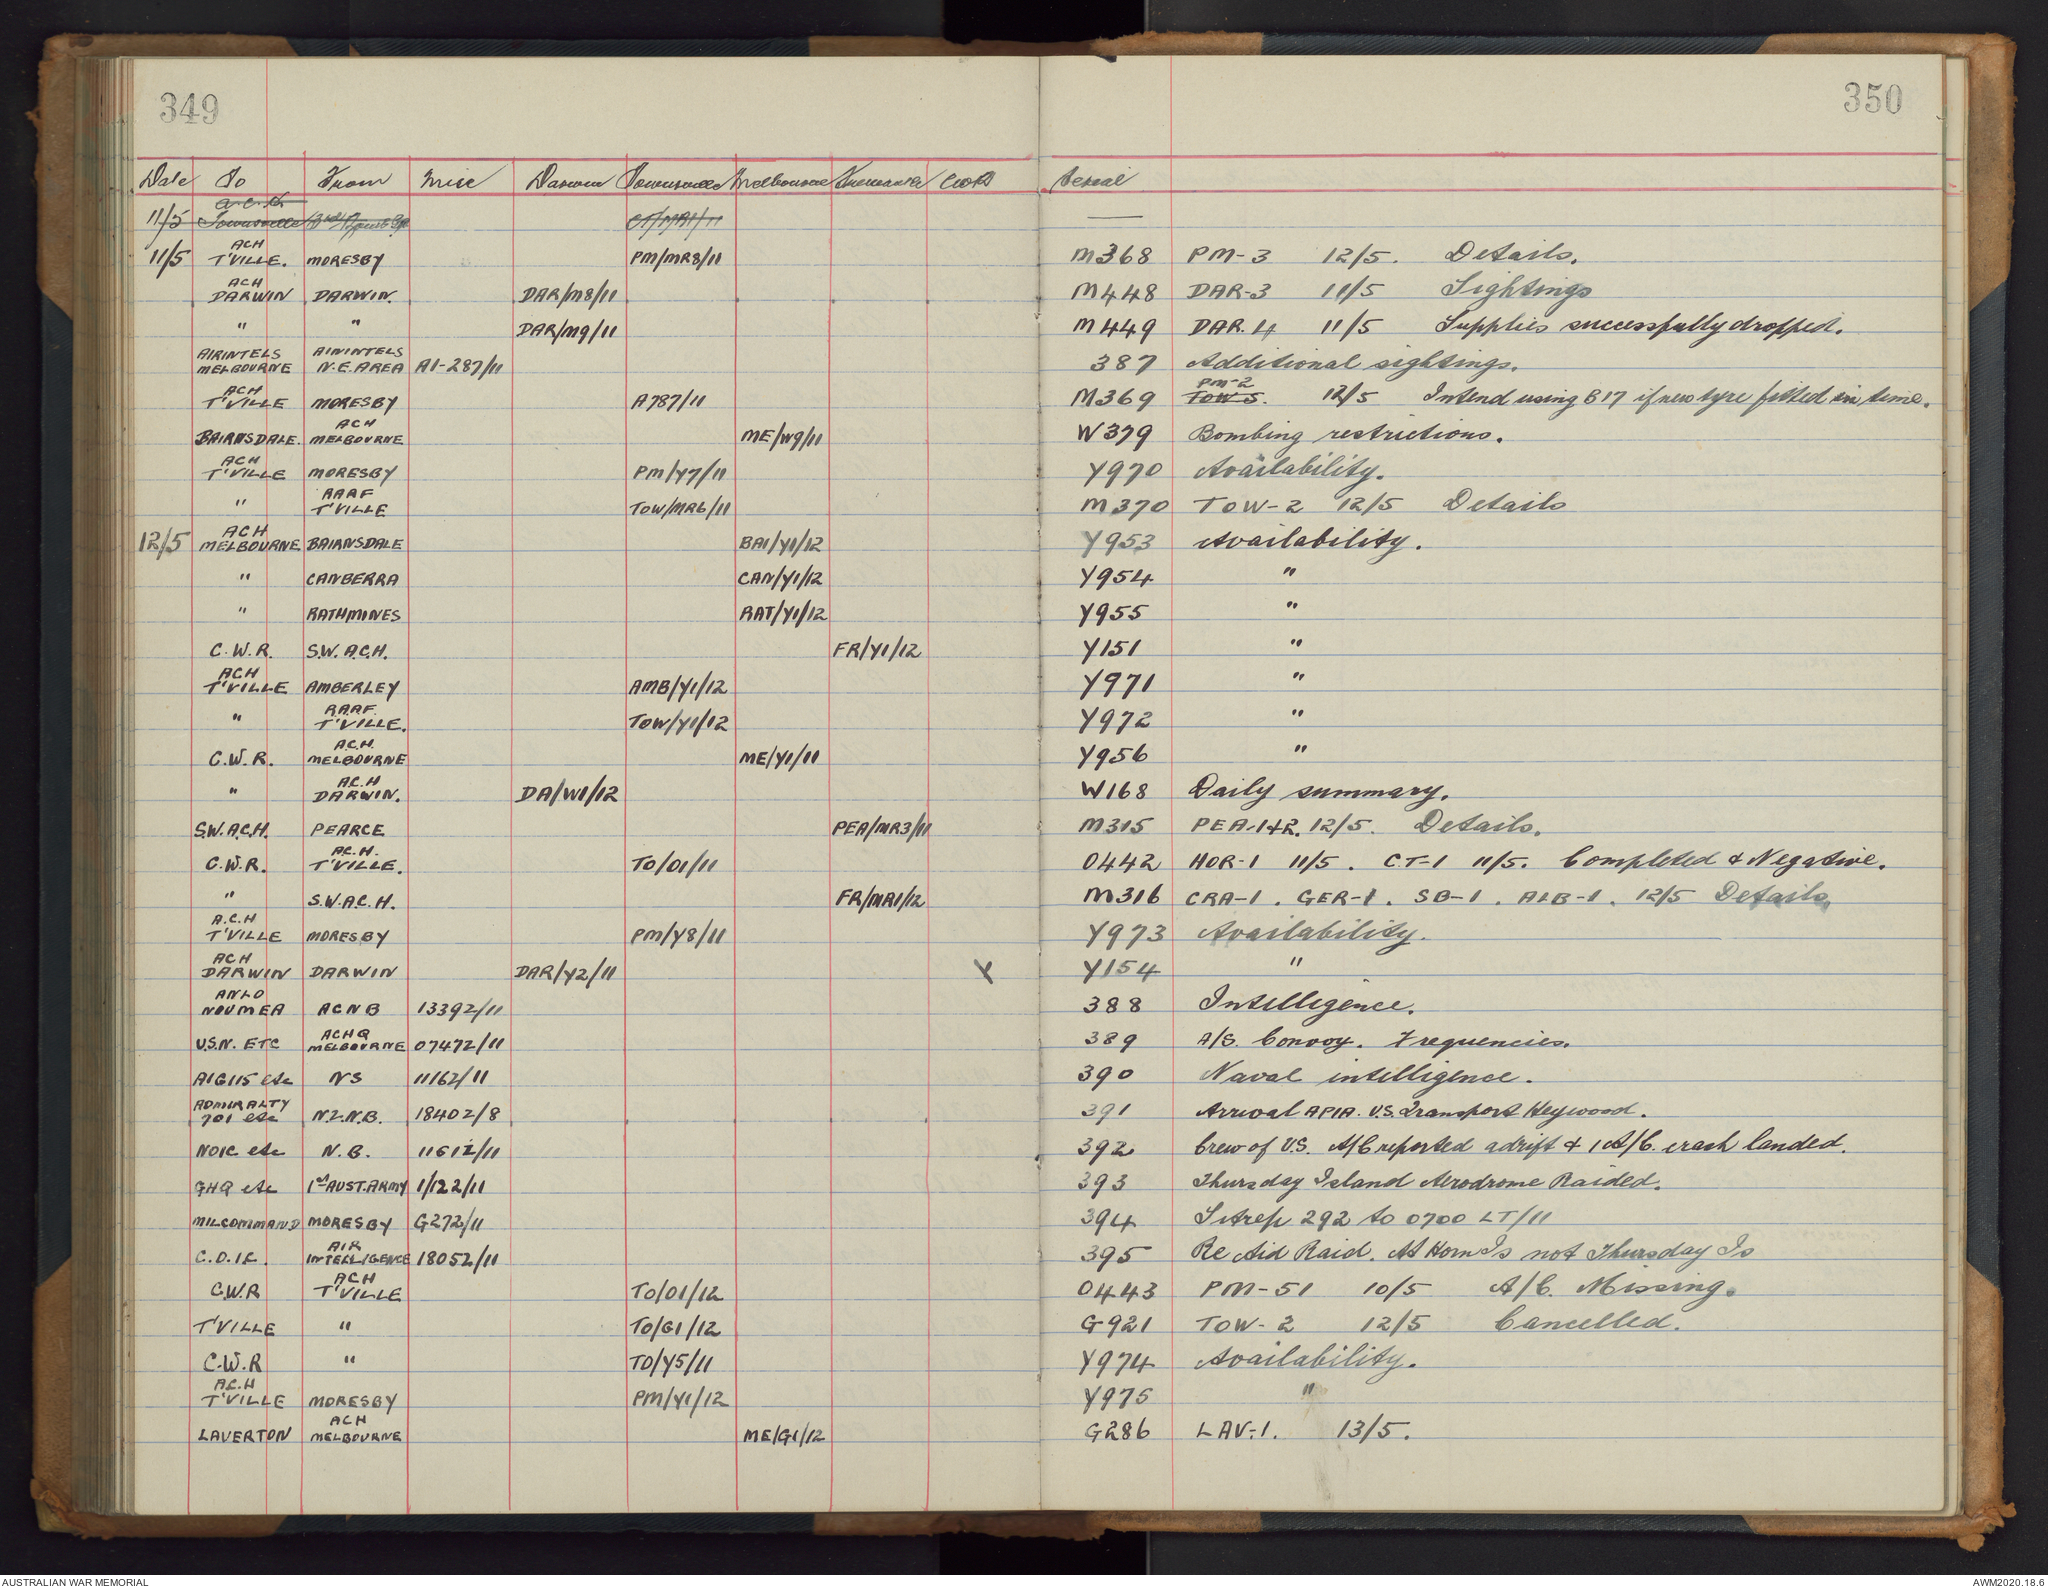 349
350
Date To From Misc Darwin Townsville Melbourne Fremantle Serial
11/5 A.C.H. Townsville —
11/5 ACH T'VILLE. MORESBY PM/MR8/11 M368 PM-3 12/5. Details.
ACH DARWIN DARWIN. DAR/M8/11 M448 DAR-3 11/5 Sightings
" " DAR/M9/11 M449 DAR.4 11/5 Supplies successfully dropped.
AIRINTELS MELBOURNE AIRINTELS N.E.AREA A1-287/11 387 Additional sightings.
ACH T'VILLE MORESBY A787/11 M369 TOW 5. PM-2 12/5 Intend using B17 if new tyre fitted in time.
BAIRNSDALE. ACH MELBOURNE ME/W9/11 W379 Bombing restrictions.
ACH T'VILLE MORESBY PM/Y7/11 Y970 Availability.
" RAAF T'VILLE TOW/MR6/11 M370 TOW-2 12/5 Details
12/5 ACH MELBOURNE BAIRNSDALE BAI/Y1/12 Y953 Availability.
" CANBERRA CAN/Y1/12 Y954 "
" RATHMINES RAT/Y1/12 Y955 "
C.W.R. S.W.A.C.H. FR/Y1/12 Y151 "
ACH T'VILLE AMBERLEY AMB/Y1/12 Y971 "
" RAAF. T'VILLE. TOW/Y1/12 Y972 "
C.W.R. A.C.H. MELBOURNE ME/Y1/11 Y956 "
" A.C.H DARWIN. DA/W1/12 W168 Daily summary.
S.W.A.C.H. PEARCE PEA/MR3/11 M315 PEA.1+2. 12/5. Details.
C.W.R. A.C.H. T'VILLE. TO/O1/11 O442 HOR-1 11/5. CT-1 11/5. Completed & Negative.
" S.W.A.C.H. FR/MR1/12 M316 CRA-1. GER-1. SB-1. ALB-1. 12/5 Details
A.C.H T'VILLE MORESBY PM/Y8/11 Y973 Availability.
ACH DARWIN DARWIN DAR/Y2/11 Y Y154 "
ANLO NOUMEA ACNB 13392/11 388 Intelligence.
U.S.N. ETC ACHQ MELBOURNE 07472/11 389 A/S. Convoy. Frequencies.
AIG115 etc NS 11162/11 390 Naval intelligence.
ADMIRALTY 701 etc N.Z.N.B. 18402/8 391 Arrival APIA. U.S. Transport Heywood.
NOIC etc N.B. 11612/11 392 Crew of U.S. A/C reported adrift & 1 A/C. crash landed.
GHQ etc 1st AUST.ARMY 1/122/11 393 Thursday Island Aerodrome Raided.
MILCOMMAND MORESBY G272/11 394 Sitrep 292 to 0700 LT/11
C.O.I.C. AIR INTELLIGENCE 18052/11 395 Re Aid Raid. At Horn Is not Thursday Is
C.W.R ACH T'VILLE TO/O1/12 O443 PM-51 10/5 A/C. Missing.
T'VILLE " TO/G1/12 G921 TOW-2 12/5 Cancelled.
C.W.R " TO/Y5/11 Y974 Availability.
A.C.H T'VILLE MORESBY PM/Y1/12 Y975 "
LAVERTON ACH MELBOURNE ME/G1/12 G286 LAV-1. 13/5.
AUSTRALIAN WAR MEMORIAL
AWM2020.18.6